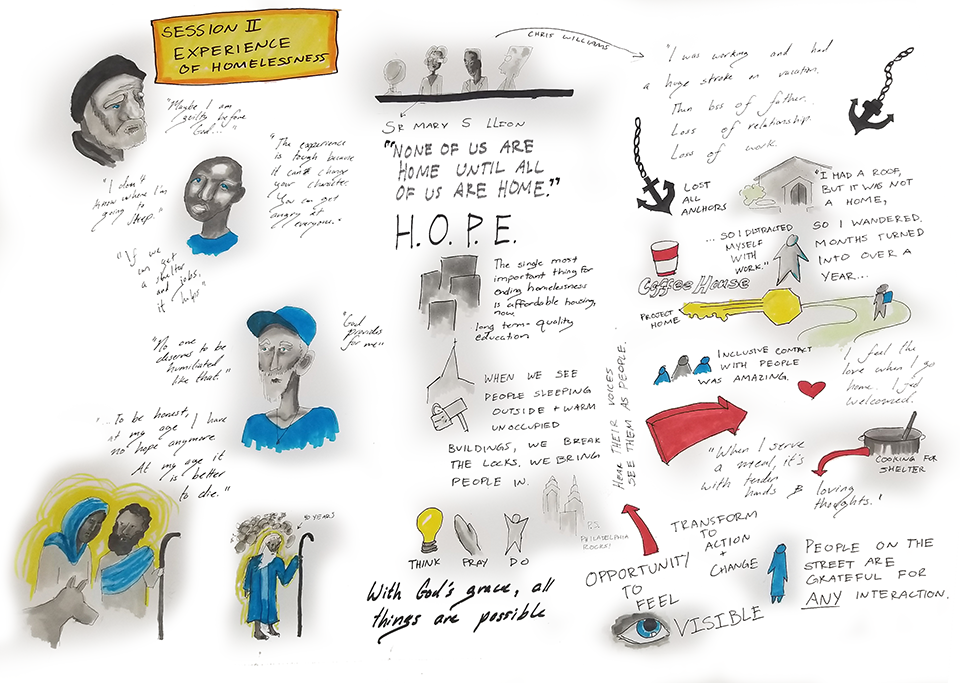 SESSION II
EXPERIENCE
OF HOMELESSNESS
"Maybe I am
guilty before
God..."
"The experience
is tough because
it can change
your character.
You can get
angry at
everyone."
"I don't
know where I'm
going to
sleep."
"If we
can get
a shelter
and jobs,
it helps"
"No one
deserves to be
humiliated
like that."
"God
provides
for me"
"...To be honest,
at my age I have
no hope anymore
At my age it
is better
to die."
CHRIS WILLIAMS
SR MARY S LLION
"NONE OF US ARE
HOME UNTIL ALL
OF US ARE HOME."
H.O.P.E.
The single most
important thing for
ending homelessness
is affordable housing,
now.
long term - quality
education
WHEN WE SEE
PEOPLE SLEEPING
OUTSIDE + WARM
UNOCCUPIED
BUILDINGS, WE BREAK
THE LOCKS. WE BRING
PEOPLE IN.
PHILADELPHIA
THINK PRAY DO
With God's grace, all
things are possible
"I was working and had
a huge stroke on vacation.
Then loss of father.
Loss of relationship.
Loss of work.
LOST
ALL
ANCHORS
"I HAD A ROOF,
BUT IT WAS NOT
A HOME,
...SO I DISTRACTED
MYSELF
WITH
WORK."
SO I WANDERED.
MONTHS TURNED
INTO OVER A
YEAR...
Coffee House
PROJECT
HOME
INCLUSIVE CONTACT
WITH PEOPLE
WAS AMAZING.
I feel the
love when I go
home. I feel
welcomed.
HEAR THEIR VOICES
SEE THEM AS PEOPLE.
"When I serve
a meal, it's
with tender
hands &
loving
thoughts."
COOKING FOR
SHELTER
TRANSFORM
TO
ACTION
+
CHANGE
OPPORTUNITY
TO
FEEL
VISIBLE
PEOPLE ON THE
STREET ARE
GRATEFUL FOR
ANY INTERACTION.